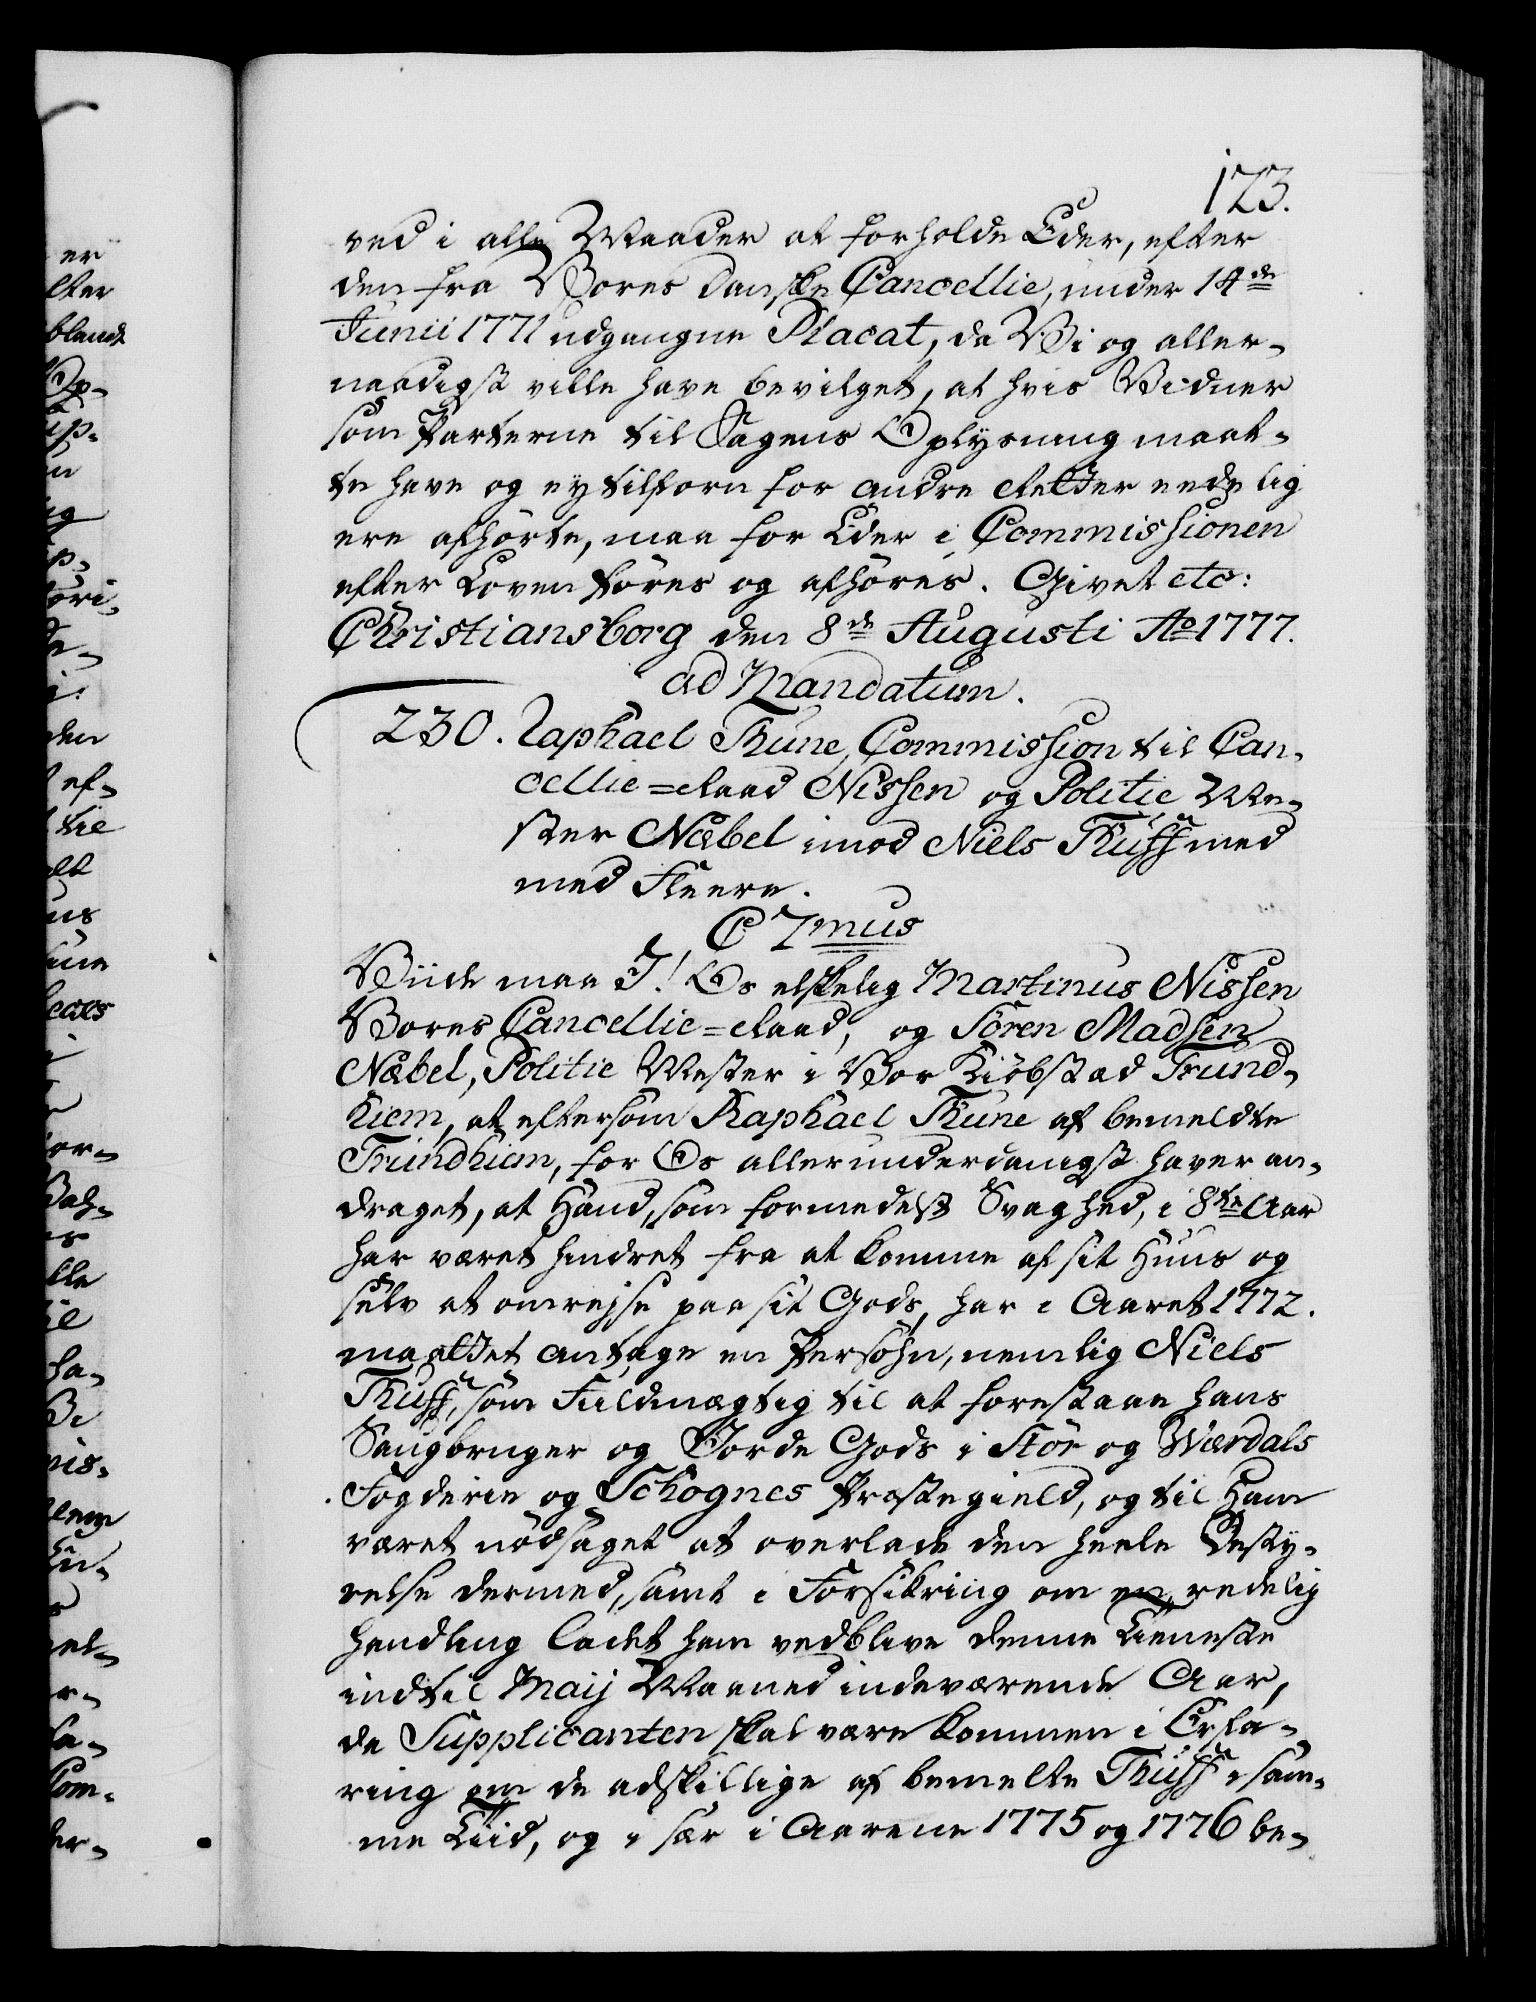 123.
ved i alle Maader at forholde Eder, efter
den fra Vores Danske Cancellie, under 14de
Junii 1771 udgangne Placat, da Vi og aller-
naadigst ville have bevilget, at hvis Vidner
som Parterne til Sagens Oplysning maat-
te have og ey tilforn for andre Retter eedelig
ere afhørte, maa for Eder i Commissionen
efter Loven føres og afhøres. Givet etc:
Christiansborg den 8de Augusti Ao 1777.
ad Mandatum.
230. Raphael Thune, Commission til Can-
cellie=Raad Nissen og Politie Me-
ster Næbel imod Niels Thuff med
med Fleere.
C 7mus
Viide maa I! Os elskelig Martinus Nissen
Vores Cancellie=Raad, og Sören Madsen
Næbel, Politie Mester i Vor Kiöbstad Trund-
hiem, at eftersom Raphael Thune af bemeldte
Trundhiem, for Os allerunderdanigst haver an-
draget, at Hand, som formedelst Svaghed, i 8te Aar
har været hindret fra at komme af sit Huus og
selv at omrejse paa sit Gods, har i Aaret 1772.
maattet antage en Persohn, nemlig Niels
Thuff, som Fuldmægtig til at forestaae hans
Saugbruger og Jorde Gods i Stör og Værdals
Fogderie og Schognes Præstegield, og til Ham
været nödsaget at overlade den heele Besty-
relse dermed, samt i Forsikring om en redelig
handling ladet ham vedblive denne Tieneste
indtil Maij Maaned indeværende Aar,
da Supplicanten skal være kommen i Erfa-
ring om de adskillige af bemelte Thuff i sam-
me Tiid, og i sær i Aarene 1775 og 1776 be-